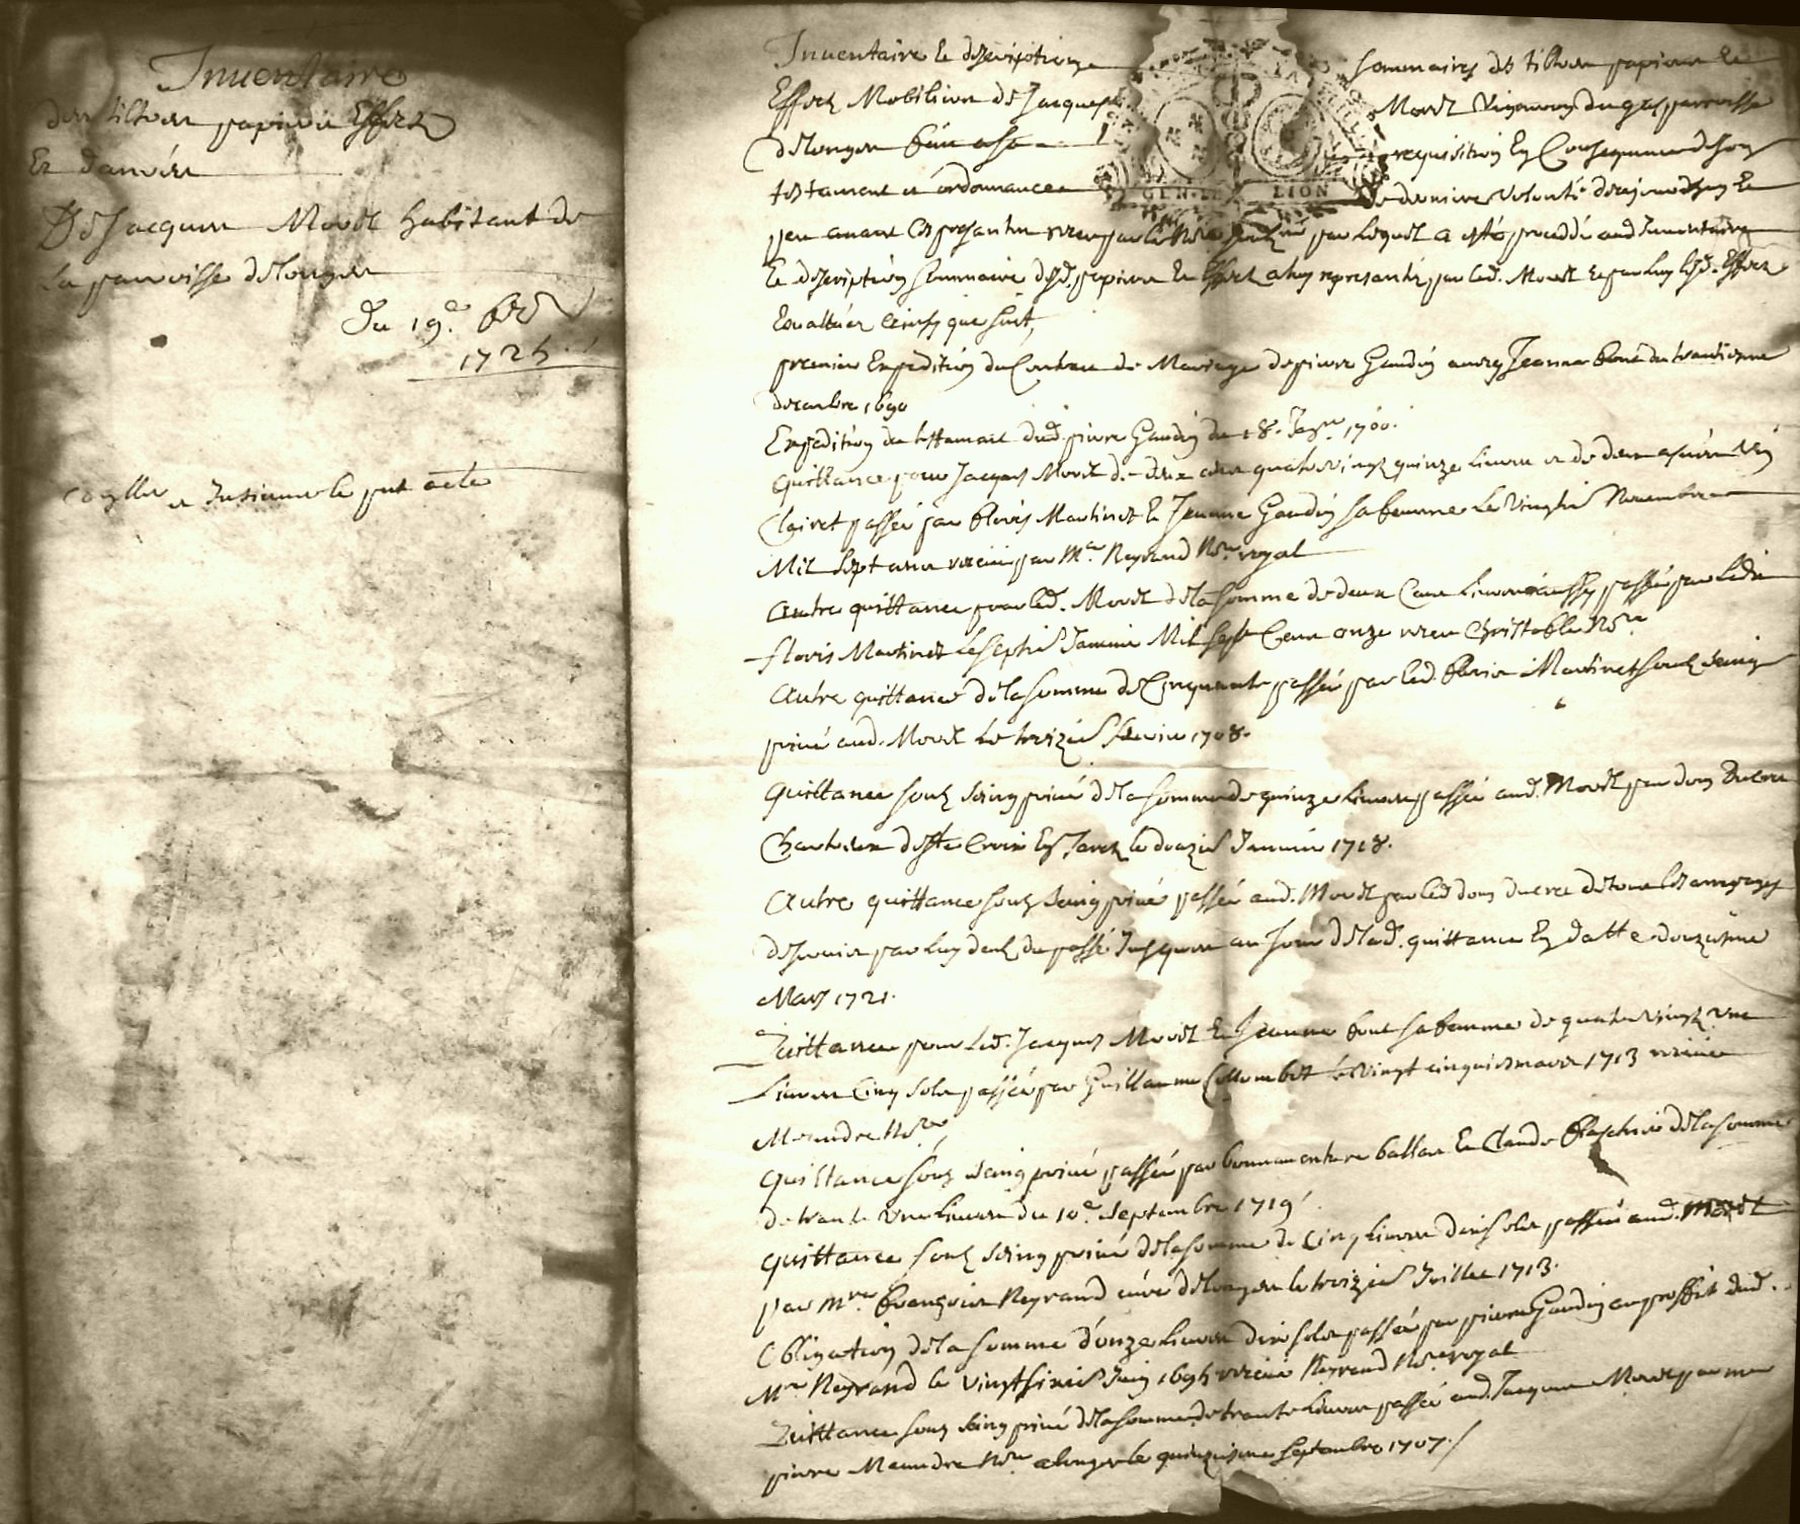 Inventaire
des tiltres papiers Effects
Et danrées
De Jacques Morel habitant de
La parroisse de longes
Du 19e 8bre
1725
controller et Insinuer le pnt acte
Inventaire Et description sommaires des tiltres papiers Et
Effects Mobiliers de Jacques Morel Vigneron de parroisse
de longes faict a sa requisition En Consequence de son
testament et ordonnance de derniere volonté de cejourdhuy Et
GEN LION
peu avant Ces presentes receu par le Nore par Lequel a esté proceddé aud Inventaire
Et description sommaire desd. papiers Et Effects a luy representés par led. Morel Et par luy lesd. Effects
Evalluez Ainsy que suit,
premiere Expedition du Contract de Mariage de pierre Gaudin avecq Jeanne du trantiesme
decembre 1690
Expedition du testament dud. pierre Gaudin du 18. 1700.
Quittance pour Jacques Morel de deux cens quatrevingt quinze livres et de deux Vin
Clairet passée par floris Martinet Et Jeanne Gaudin sa femme Le Vingtie Novembre
Mil sept cens receüe par Me. Reyrand Nore royal
Autre quittance pour led. Morel de la somme de deux Cens livres aussy passée par ledit
floris Martinet le septie Janvier Mil sept Cens onze receu Nore
Autre quittance de la somme de Cinquante passée par led. floris Martinet soubz seing
privé aud. Morel le treizie fevrier 1708.
Quittance soubz seing privé de la somme de quinze livres passée aud. Morel par dom Ducreu
Chartreux de Ste Croix En Jarez le douzie Janvier 1718.
Autre quittance soubz seing privé passée aud. Morel par led dom ducreu de tous les arrerages
de servis par luy deubz du passé Jusques au Jour de lad. quittance En datte douziesme
Mars 1721.
Quittance pour led. Jacques Morel Et Jeanne sa femme de quatrevingt une
Livres Cinq sols passée par Guillaume Collombet le Vingt cinquies mars 1713 receüe
Meandre Nore
Quittance soubz seing privé passée par bonnaventure ballas Et Claude de la somme
de trante Une livres du 10e. septembre 1719
Quittance soubz seing privé de la somme de Cinq livres dix sols passée aud. Morel
par Mre. françois Reyrand curé de longes le treizie Juillet 1713.
Obligation de la somme d'onze livres dix sols passée par pierre Gaudin au proffit dud.
Mre Reyrand le vingtsixie Juin 1695 receüe Reyrand Nore royal
Quittance soubz seing privé de la somme de trante livres passée aud. Jacques Morel par me
pierre Meandre Nore a longes le quinziesme septembre 1707./